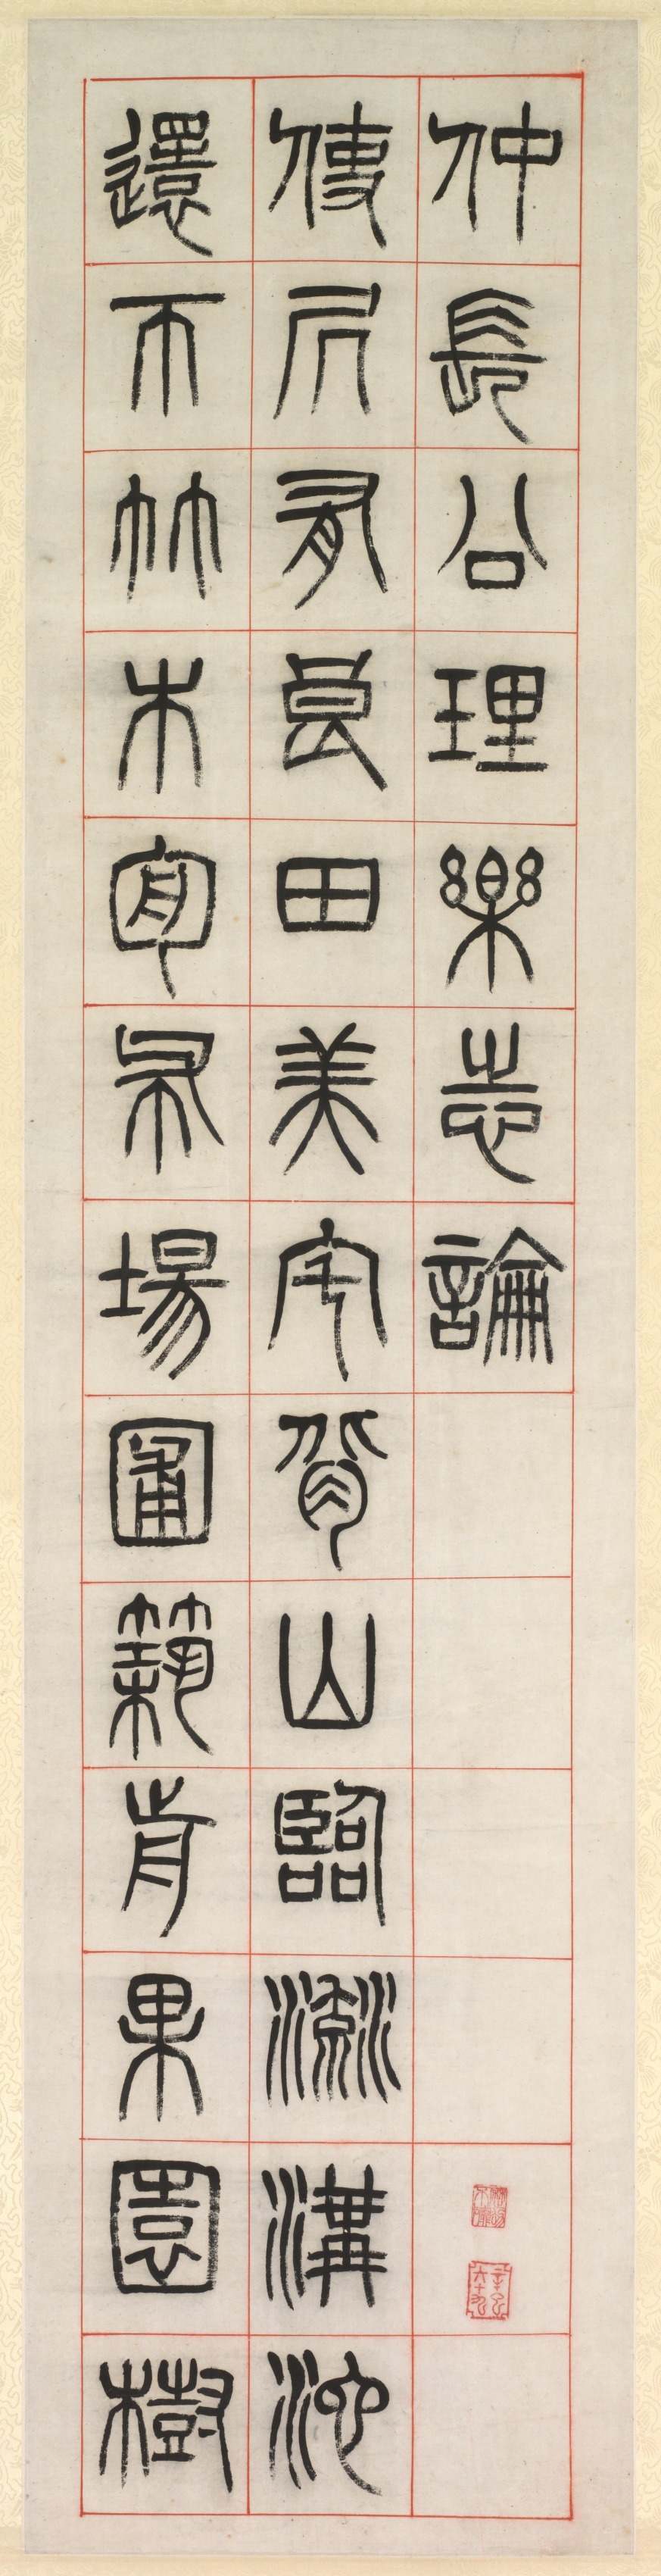 仲長公理樂志論
使凥有良田美宅背山臨流溝池
還帀竹木周布場圃築歬果園樹